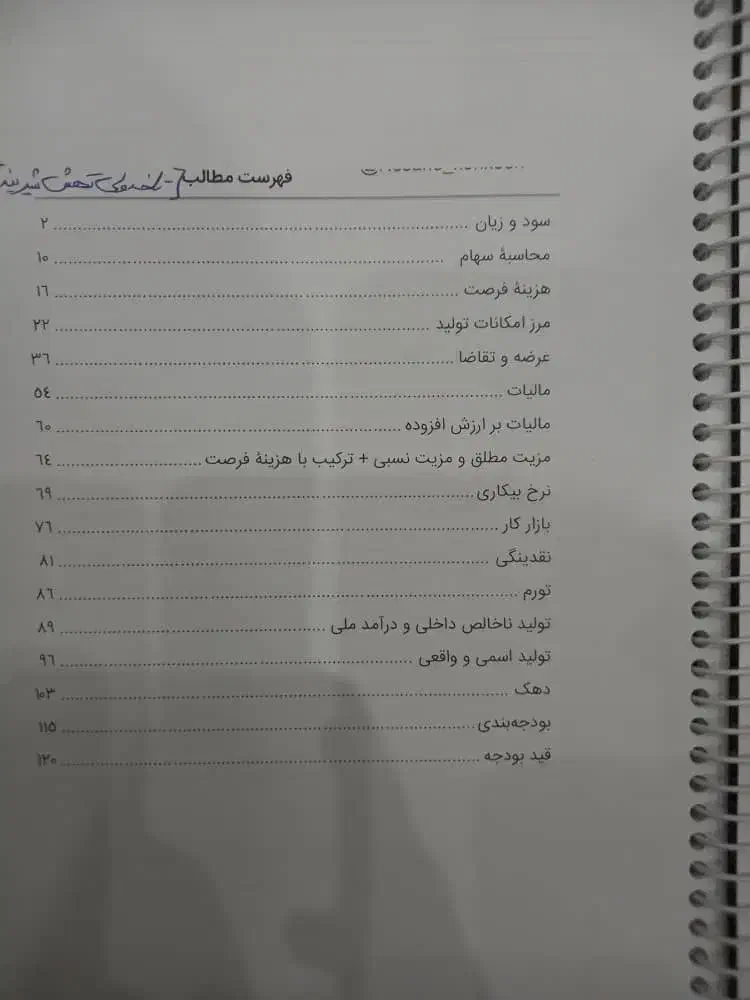 فهرست مطالب
سود و زیان ۲
محاسبهٔ سهام ۱۰
هزینهٔ فرصت ۱۶
مرز امکانات تولید ۲۲
عرضه و تقاضا ۳۶
مالیات ۵۴
مالیات بر ارزش افزوده ۶۰
مزیت مطلق و مزیت نسبی + ترکیب با هزینهٔ فرصت ۶۴
نرخ بیکاری ۶۹
بازار کار ۷۶
نقدینگی ۸۱
تورم ۸۶
تولید ناخالص داخلی و درآمد ملی ۸۹
تولید اسمی و واقعی ۹۶
دهک ۱۰۳
بودجه‌بندی ۱۱۵
قید بودجه ۱۲۰